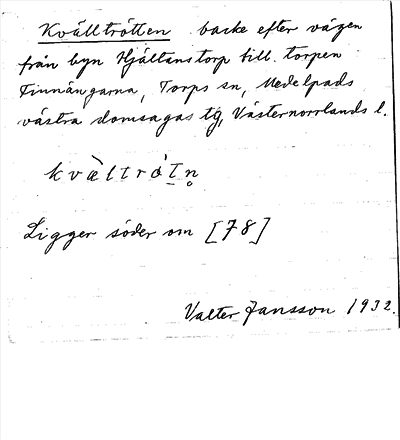 Kvälltrötten backe efter vägen
från byn Hjältanstorp till torpen
Finnängarna, Torps sn, Medelpads
västra domsagas tg, Västernorrlands l.
Ligger söder om [78]
Valter Jansson 1932.